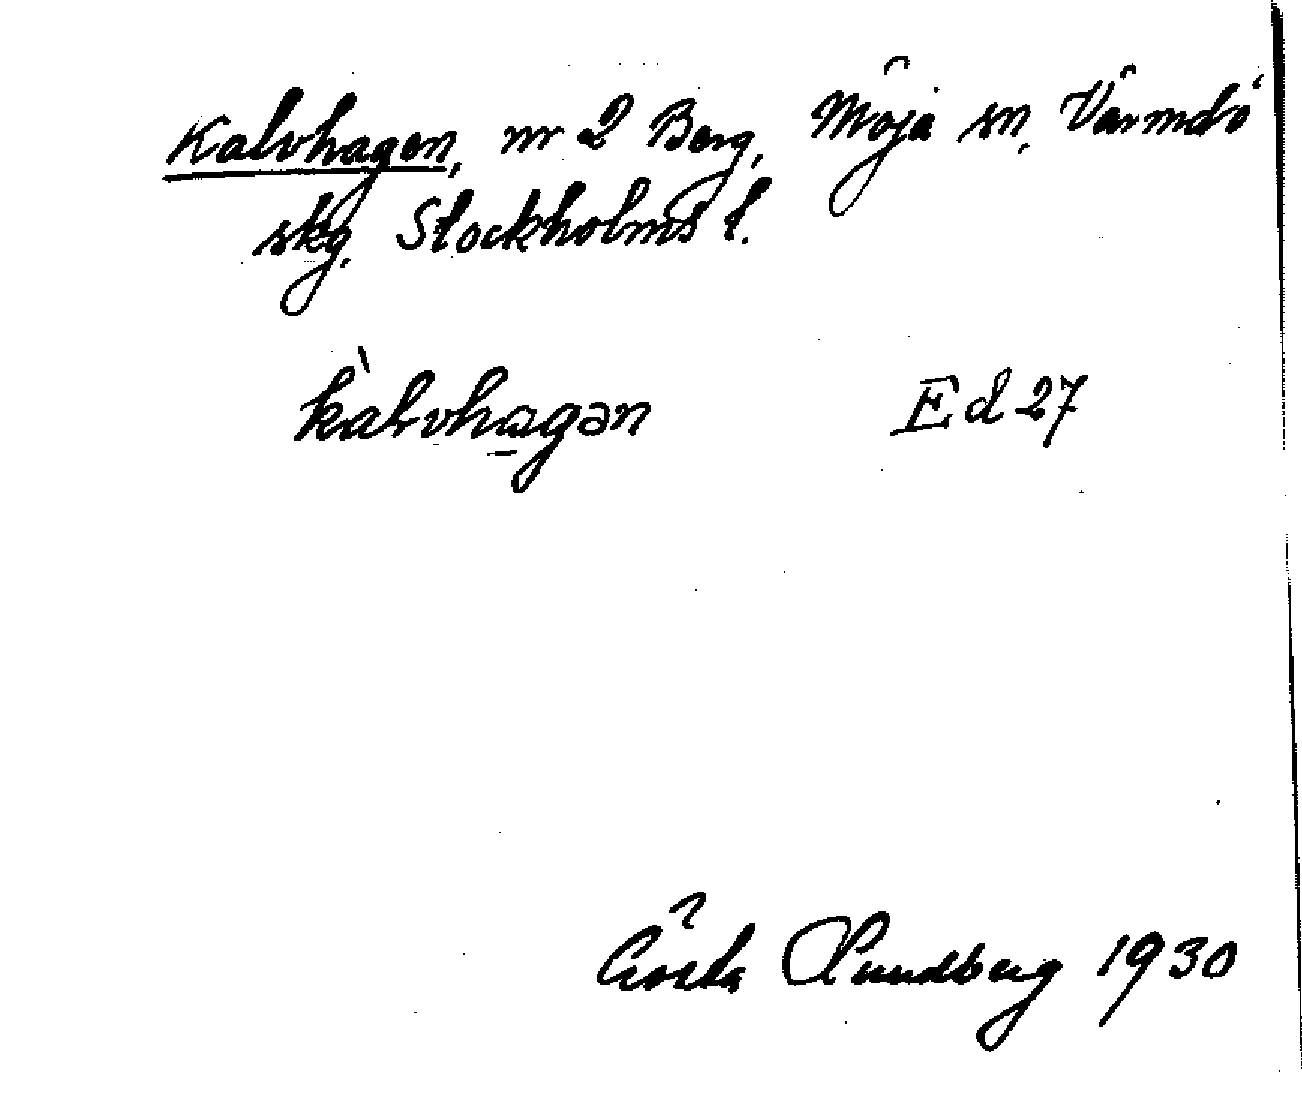 Kalvhagen, nr 2 Berg, Möja sn, Värmdö
skg. Stockholms l.
kàlvhagən Ed 27
Gösta Sundberg 1930